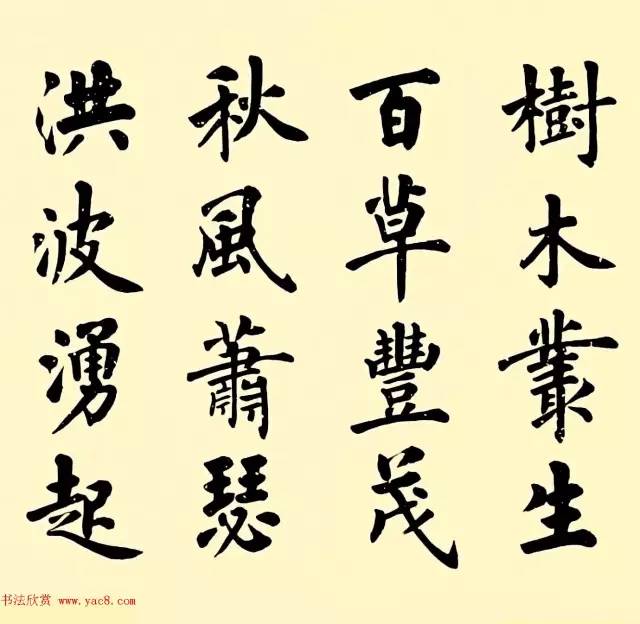 樹木叢生
百草豐茂
秋風蕭瑟
洪波湧起
书法欣赏 www.yac8.com